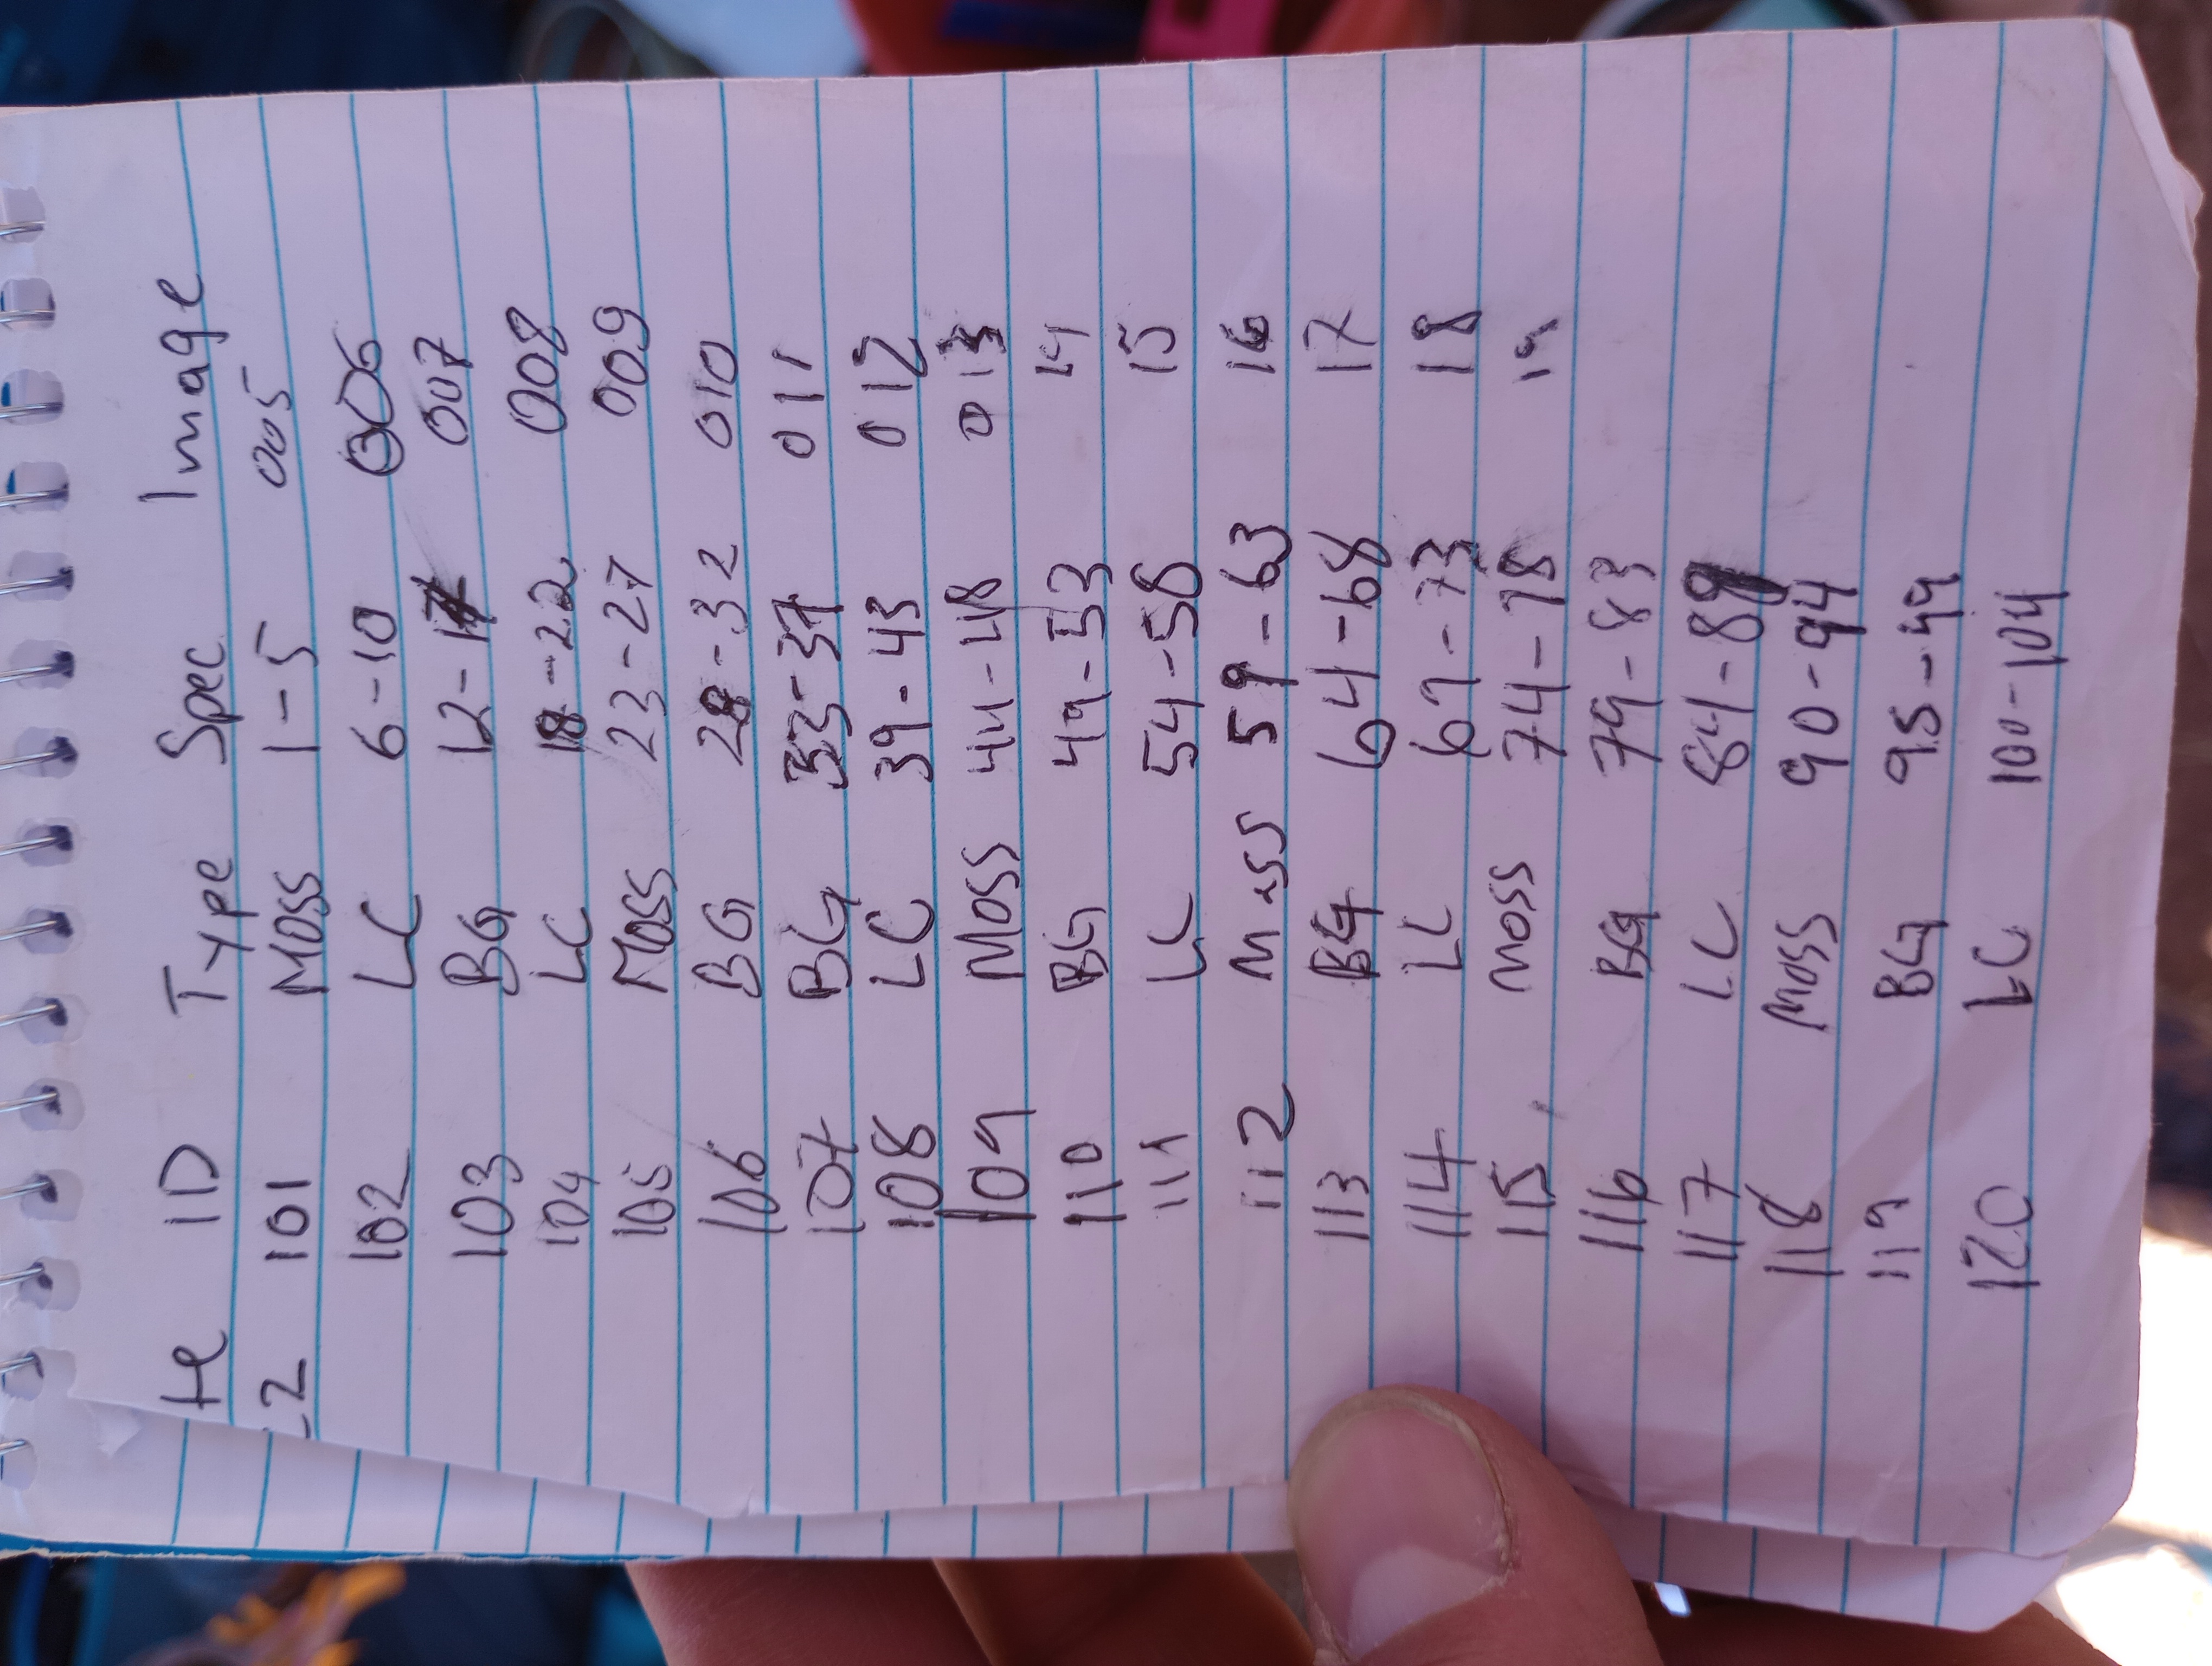 te ID Type Spec Image
22 101 Moss 1-5 005
102 LC 6-10 006
103 BG 12-17 007
104 LC 18-22 008
105 Moss 23-27 009
106 BG 28-32 010
107 BG 33-37 011
108 LC 39-43 012
109 Moss 44-48 013
110 BG 49-53 14
111 LC 54-58 15
112 Moss 59-63 16
113 BG 64-68 17
114 LC 69-73 18
115 Moss 74-78 19
116 BG 79-83
117 LC 84-89
118 Moss 90-94
119 BG 95-99
120 LC 100-104